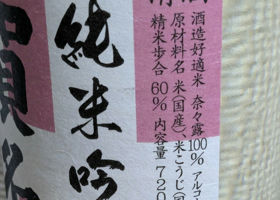 酒造好適米 奈々露100% アルコ
原材料名 米(国産)、米こうじ(国
精米歩合 60% 内容量 720
純米吟